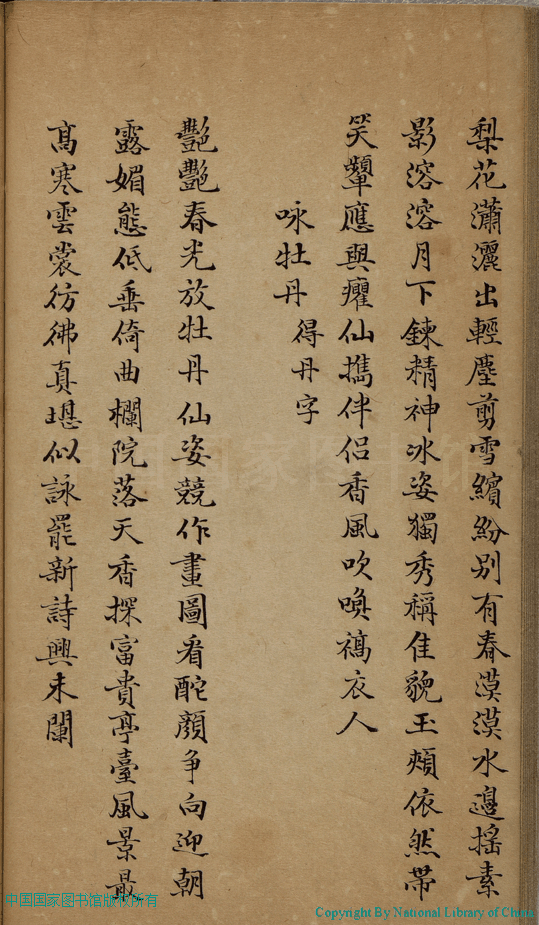 梨花瀟灑出輕塵剪雪繽紛别有春漠漠水邊揺素
影溶溶月下鍊精神冰姿獨秀稱佳貌玉頰依然帶
笑顰應與癯仙擕伴侣香風吹喚縞衣人
咏牡丹 得丹字
艷艷春光放牡丹仙姿競作畫圖看酡顔争向迎朝
露媚態低垂倚曲欄院落天香探富貴亭臺風景最
高寒雲裳彷彿真堪似詠罷新詩興未闌
中国国家图书馆
中国国家图书馆版权所有
Copyright By National Library of China